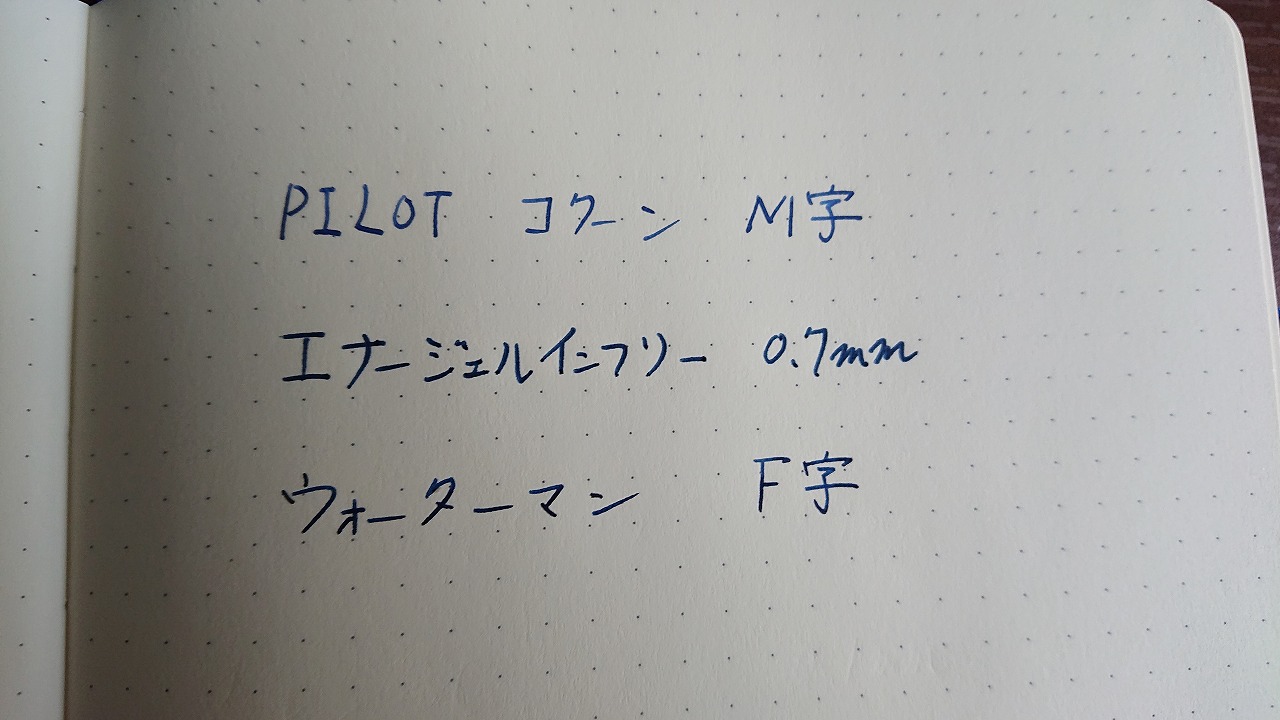 PILOT コクーン M字
エナージェルインフリー 0.7mm
ウォーターマン F字